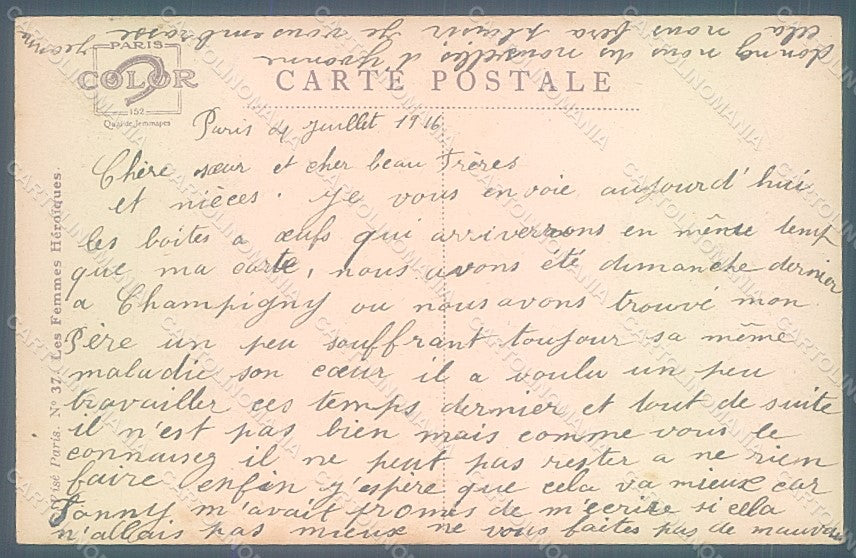 PARIS
COLOR
152
Quai de Jemmapes
CARTE POSTALE
Visé Paris. No 37. Les Femmes Héroïques.
Paris 4 juillet 1916
Chère sœur et cher beau Frères
et nièces. Je vous envoie aujourd'hui
les boites a œufs qui arriverons en même temp
que ma carte, nous avons été dimanche dernier
a Champigny ou nous avons trouvé mon
Père un peu souffrant toujour sa même
maladie son cœur il a voulu un peu
travailler ces temps dernier et tout de suite
il n'est pas bien mais comme vous le
connaisez il ne peut pas rester a ne rien
faire enfin j'espère que cela va mieux car
Fanny m'avait promes de m'ecrire si cela
n'allais pas mieux ne vous faites pas de mauvai
donnez nous des nouvelles d'Yvonne
cela nous fera plaisir Je vous embrasse Jeanne
CARTOLINOMANIA